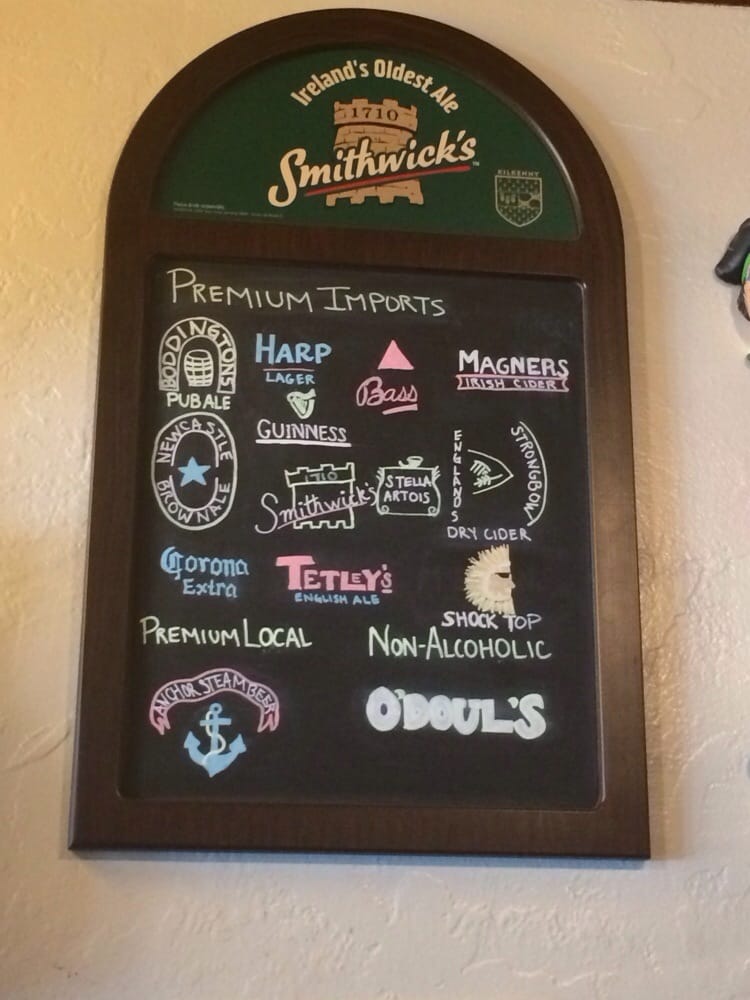 Ireland's Oldest Ale
1710
Smithwick's™
KILKENNY
PREMIUM IMPORTS
BODDINGTONS
PUB ALE
HARP
LAGER
Bass
MAGNERS
IRISH CIDER
GUINNESS
NEWCASTLE
BROWN ALE
1710
Smithwick's
STELLA
ARTOIS
ENGLANDS
STRONGBOW
DRY CIDER
Corona
Extra
TETLEY'S
ENGLISH ALE
SHOCK TOP
PREMIUM LOCAL
NON-ALCOHOLIC
ANCHOR STEAM BEER
O'DOUL'S